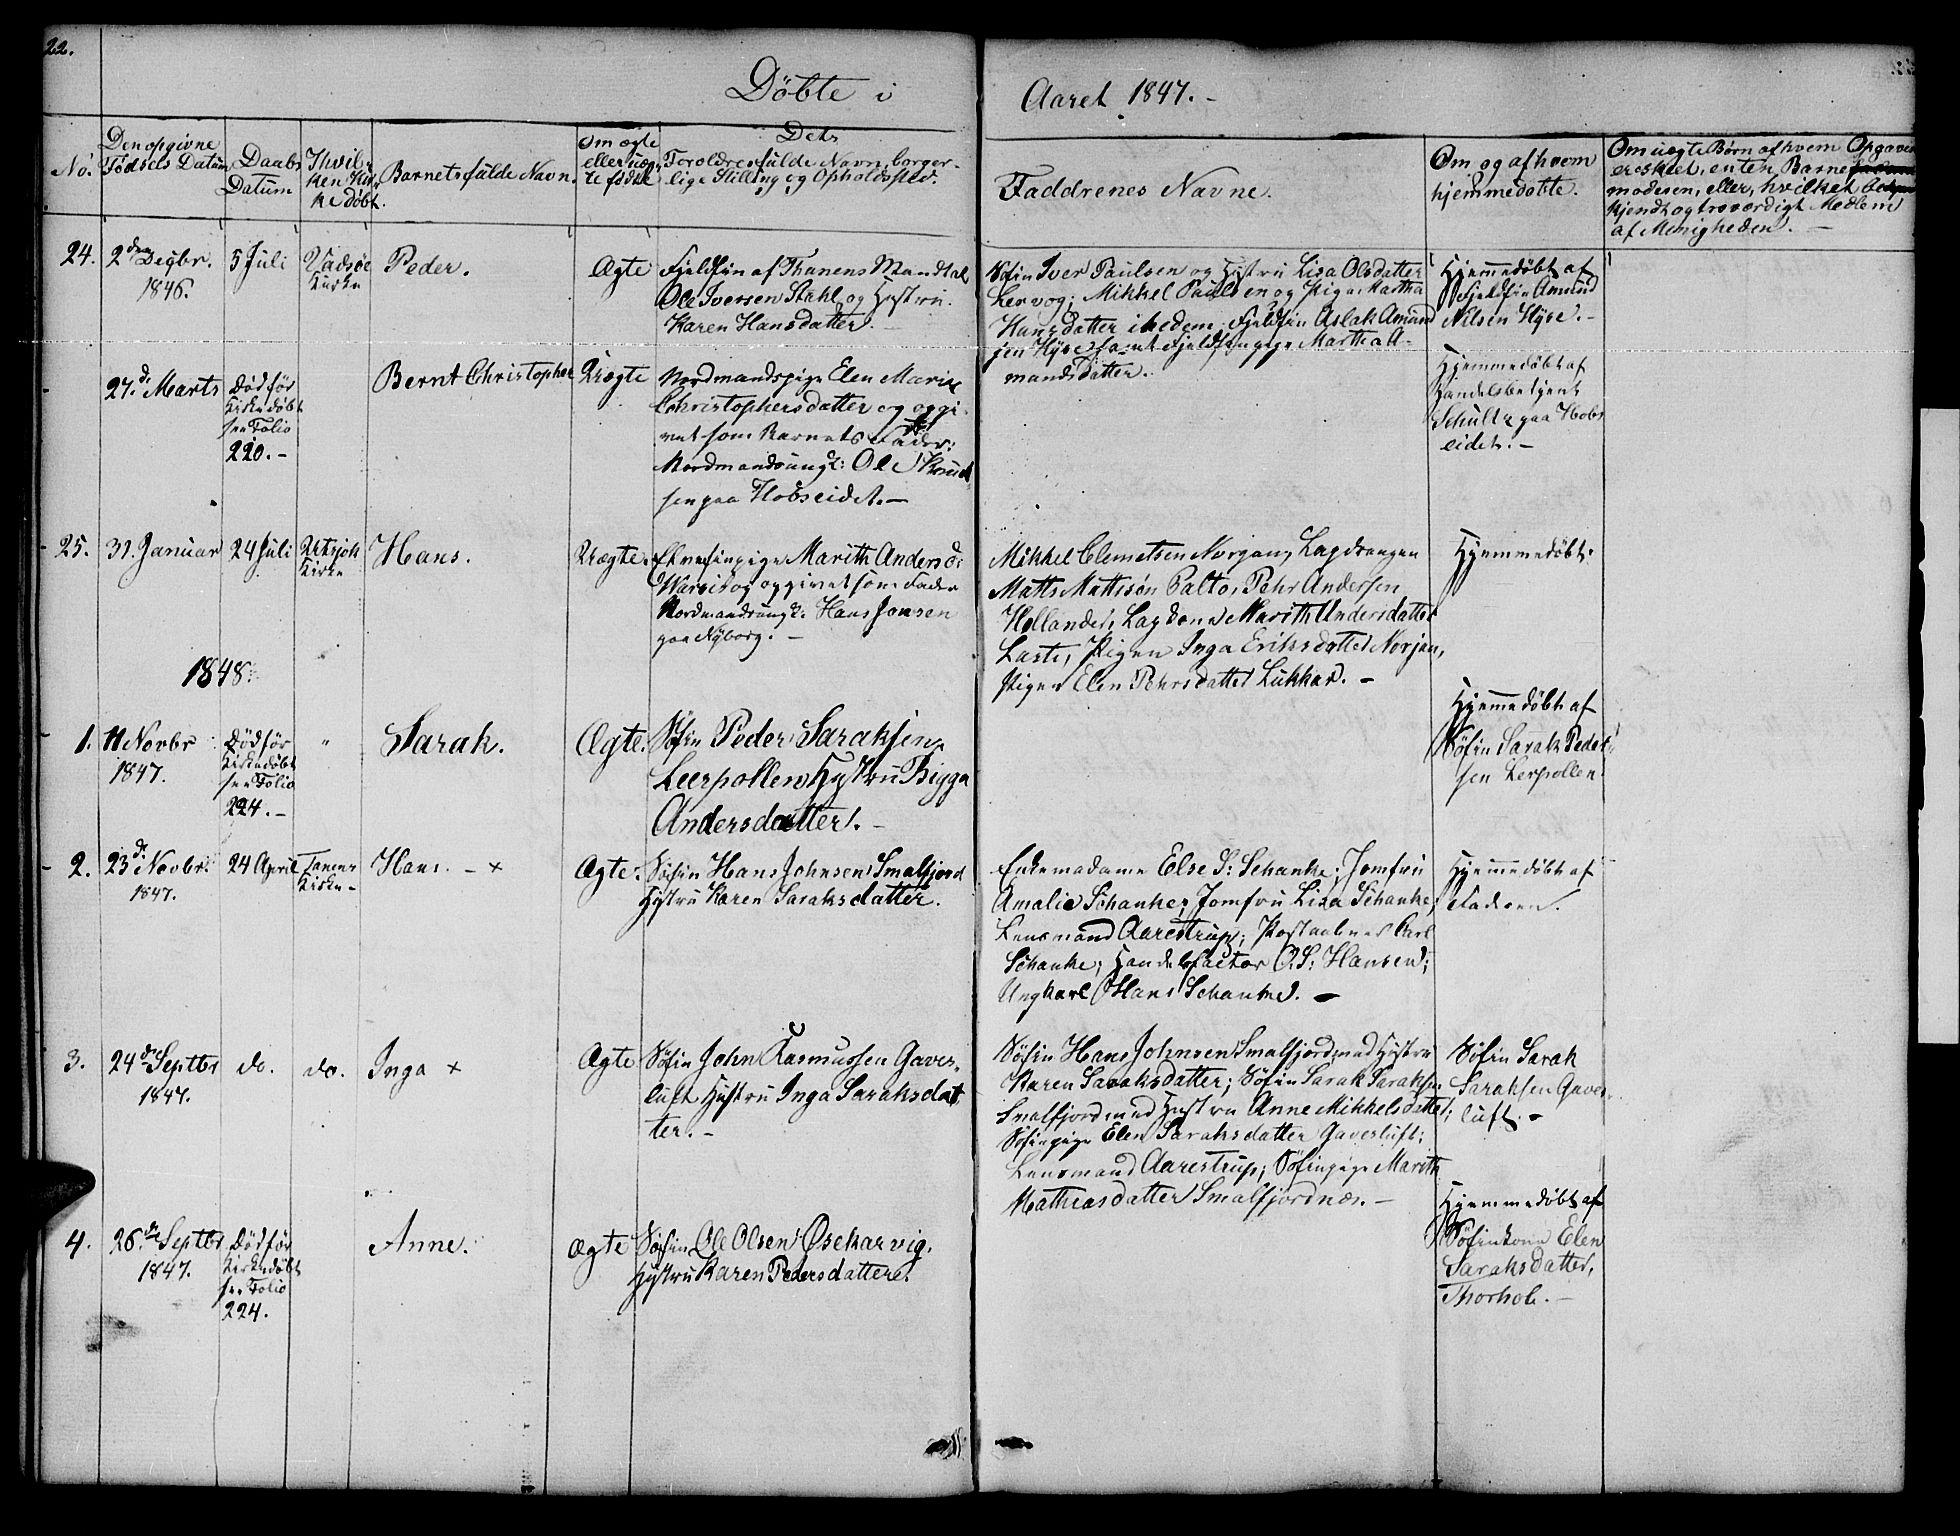 22.
Döbte i Aaret 1847.-
No.
Den opgivne
Födsels Datum
Daabs
Datum
I hvil-
ken Kir-
ke döbt.
Barnets fulde Navn.
Om ægte
eller uæg-
te födt
Dets
Forældres fulde Navn, borger-
lige Stilling og Opholdssted.
Faddrenes Navne.
Om og af hvem
hjemmedöbte.
Om uægte Børn af hvem Opgaven
er skeet, enten Barne
moderen, eller, hvilket
kjendt og troværdigt Medlem
af Menigheden. -
24.
2den Decbr.
1846.
5 Juli
Vadsöe
Kirke
Peder.
Ægte
Fjeldfin af Thanens Mandtal
Ole Iversen Stahl og Hustru
Karen Hansdatter. -
Söfin Iver Paulsen og Hustru Lisa Olsdatter
Lervog; Mikkel Paulsen og Pige Martha
Hansdatter ibidem; Fjeldfin Aslak Amund
sen Hyse samt Fjeldfinpige Martha A-
mandsdatter.
Hjemmedöbt af
Fjeldfin Amund
Nilsen Hyse. -
27. de Marts
Död för
Kirkedöbt
see Folio
220. -
Bernt Christopher
Uægte
Nordmandspige Elen Marie
Christophersdatter og opgi-
vet som Barnets Fader:
Nordmandsungk: Ole Knud
sen paa Hobseidet. -
Hjemmedöbt af
Handelsbetjent
Schultz paa Hobs
eidet. -
25.
31. Januar
24 Juli
Utsjok
Kirke
Hans.
Uægte.
Elvefinpige Marith Anders d:
Warsi og opgivet som Fader
Nordmandsungk: Hans Jonsen
paa Nyborg. -
Mikkel Clemetsen Norgan, Lapdrengen
Matts Mattson Palto, Pehr Andersen
Hellander, Lapkone Marith Andersdatter
Laste, Pigen Inga Eriksdatter Norjan,
Pigen Elen Pehrsdatter Lukkar. -
Hjemmedöbt.
1848.
1.
11 Novbr
1847.
Död för
Kirkedöbt
see Folio
224. -
"
Sarak.
Ægte.
Söfin Peder Saraksen
Leerpollen Hustru Bigga
Andersdatter. -
Hjemmedöbt af
Söfin Sarak Peder-
sen Lerpollen
2.
23 de Novbr.
1847.
24 April
Tanens
Kirke -
Hans. - ×
Ægte.
Söfin Hans Johnsen Smalfjord
Hustru Karen Saraksdatter.
Enkemadame Else S: Schanke; Jomfru
Amalie Schanke; Jomfru Lisa Schanke;
Lensmand Aarestrup; Postaabner Carl
Schanke; Handelsfactor O. S: Hansen;
Ungkarl Hans Schanke. -
Hjemmedöbt af
Faderen.
3.
24 de Septbr
1847.
do.
do.
Inga ×
Ægte
Söfin John Rasmussen Gaves-
luft Hustru Inga Saraksdat
ter. -
Söfin Hans Johnsen Smalfjord med Hustru
Karen Saraksdatter; Söfin Sarak Saraksen
Smalfjord med Hustru Anne Mikkelsdatter;
Söfinpige Elen Saraksdatter Gavesluft;
Lensmand Aarestrup; Söfinpige Marith
Mathiasdatter Smalfjordnæs. -
Söfin Sarak
Saraksen Gaves-
luft. -
4.
26. de Septbr
1847.
Död för
Kirkedöbt
see Folio
224.
Anne.
Ægte
Söfin Ole Olsen Øsekarvig.
Hustru Karen Pedersdatter.
Hjemmedöbt af
Söfinkone Elen
Saraksdatter,
Thorhol. -